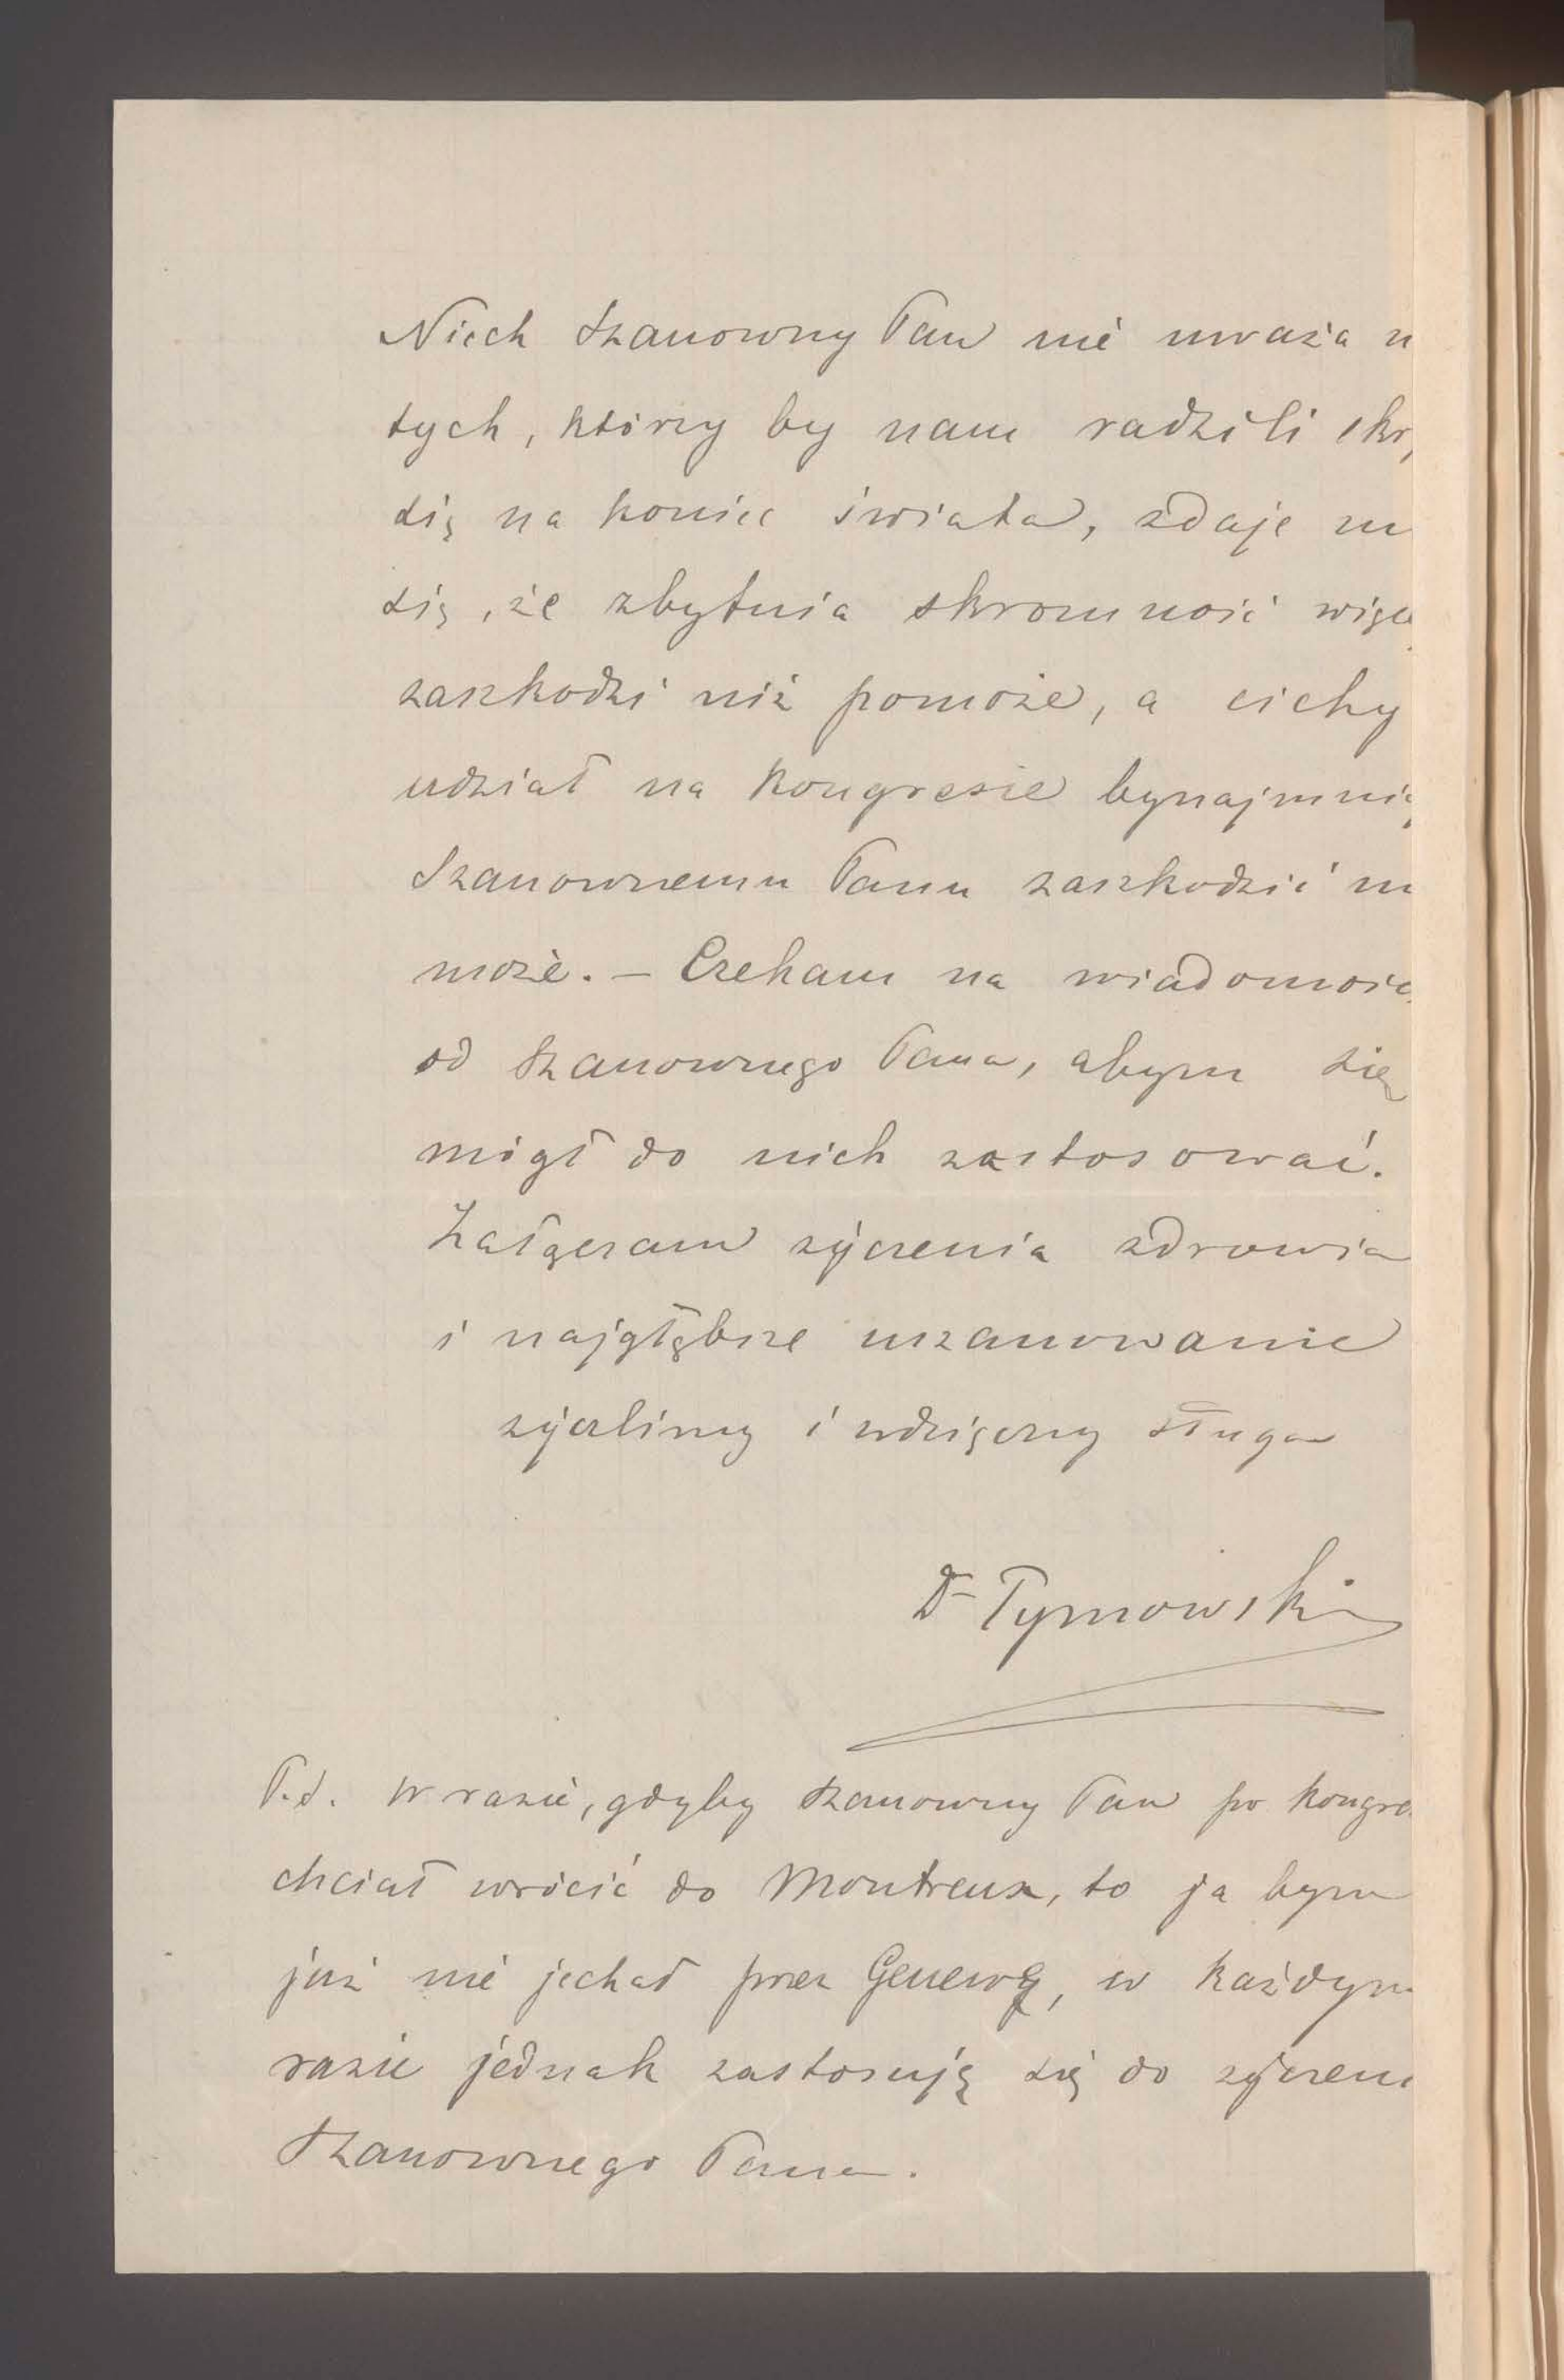 Niech Szanowny Pan nie uważa n
tych, którzy by nam radzili skr
się na koniec świata, zdaje m
się, że zbytnia skromność więc
zaszkodzi niż pomoże, a cichy
udział na kongresie bynajmnie
Szanownemu Panu zaszkodzić n
może. – Czekam na wiadomość
od Szanownego Pana, abym się
mógł do nich zastosować.
Załączam życzenia zdrowia
i najgłębsze uszanowanie
życzliwy i wdzięczny sługa
Dr Tymowski
P.S. W razie, gdyby Szanowny Pan po kongre
chciał wrócić do Montreux, to ja bym
już nie jechał przez Genewę, w każdym
razie jednak zastosuję się do życzeni
Szanownego Pana.